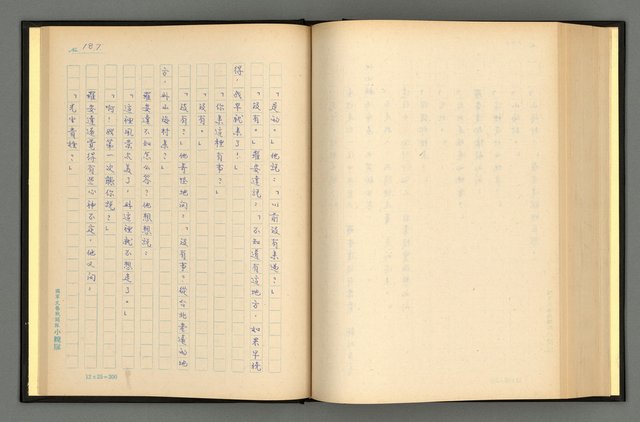 No. 187
「是的。」他說：「以前沒有來過？」
「沒有。」羅安達說：「不知道有這地方，如果早曉
得，我早就來了！」
「你來這裡有事？」
「沒有。」
「沒有？」他奇怪地問：「沒有事？從台北老遠的地
方，
羅安達不知怎麼答？他想想說：
「這裡風景太美了，好這裡我不想走了。」
「啊！我第一次聽你說？」
羅安達感覺得有些心神不定，他又問：
「先生貴姓？」
12×25=300